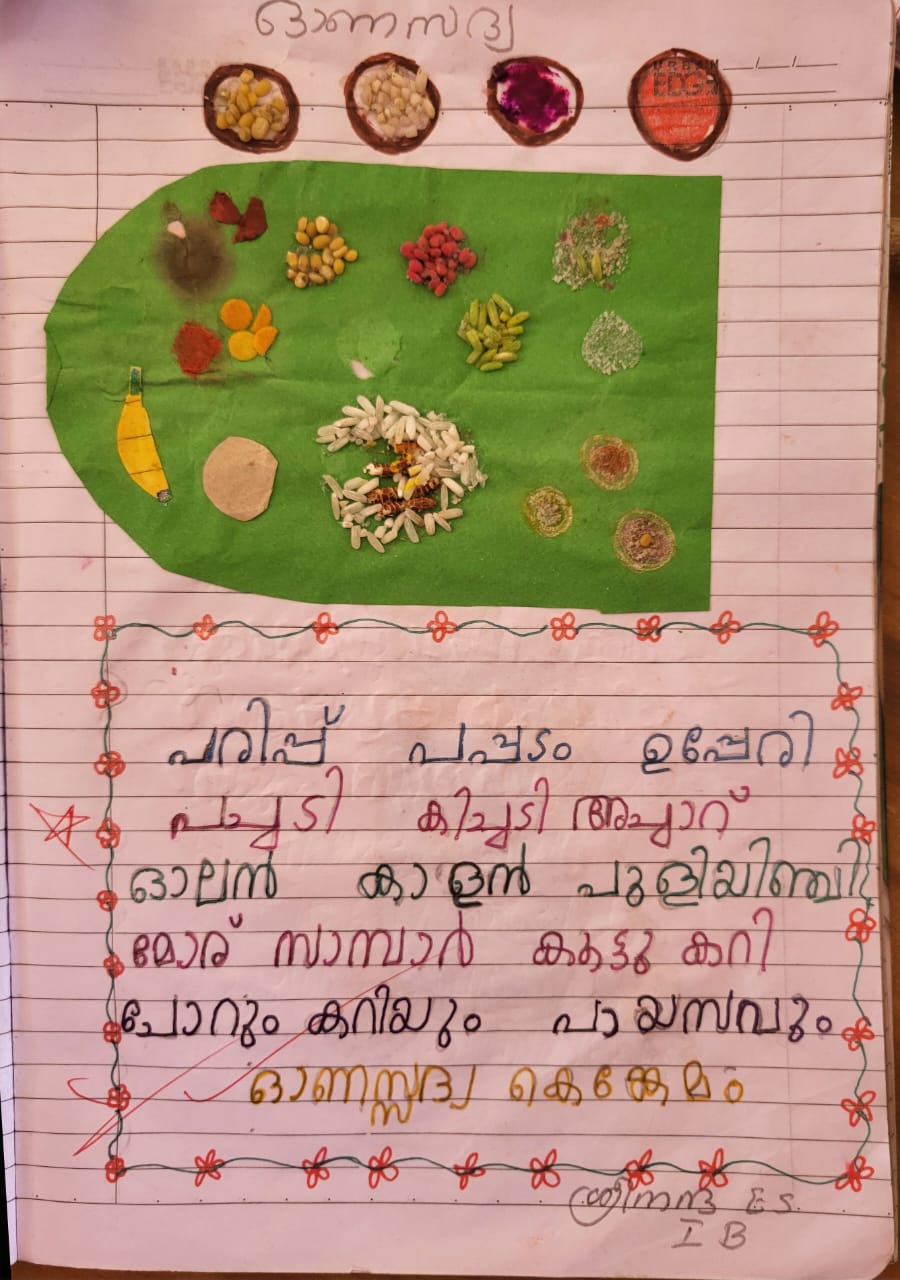 ഓണസദ്യ
URBAN
EDGE
പരിപ്പ് പപ്പടം ഉപ്പേരി
പച്ചടി കിച്ചടി അച്ചാറ്
ഓലൻ കാളൻ പുളിയിഞ്ചി
മോര് സാമ്പാർ കൂട്ടു കറി
ചോറും കറിയും പായസവും
ഓണസ്സദ്യ കെങ്കേമം
ശ്രീനന്ദ E S
I B